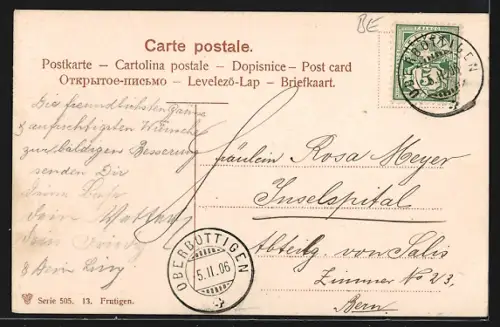 BE
Carte postale.
Postkarte – Cartolina postale – Dopisnice – Post card
Открытое-письмо – Levelező-Lap – Briefkaart.
OBERBOTTIGEN
5
Die freundlichsten Grüsse
& aufrichtigsten Wünsche
zur baldigen Besserung
senden Dir
Fräulein Rosa Meyer
Inselspital
Abteilg. von Salis
Zimmer No 23,
Bern
OBERBOTTIGEN
5.II.06
Serie 505. 13. Frutigen.